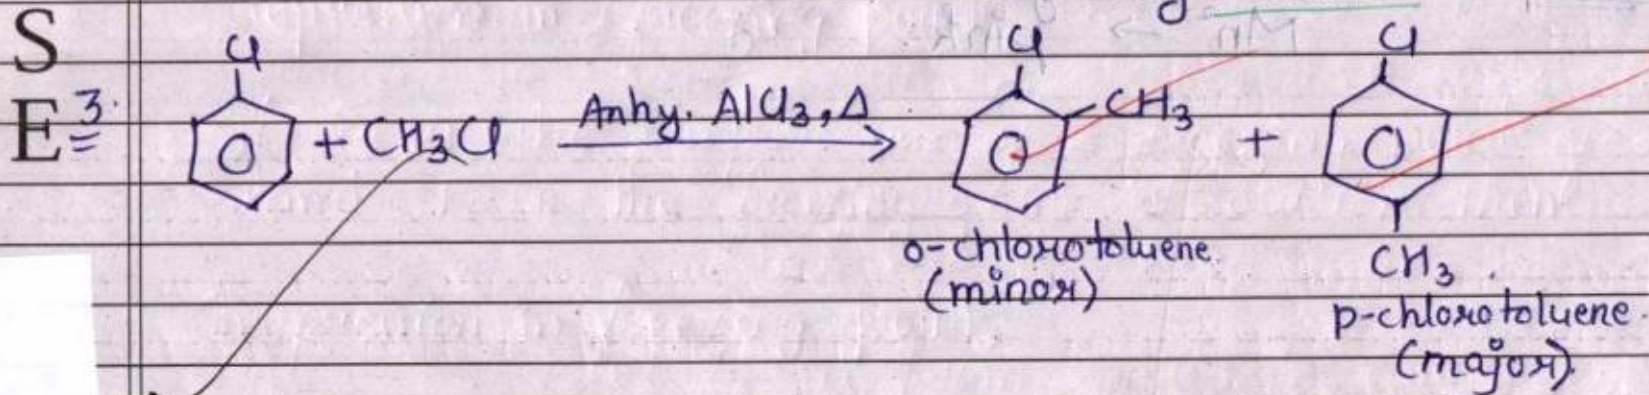 S
E 3.
Cl Cl Cl
+ CH3Cl Anhy. AlCl3, Δ → CH3 +
CH3
o-chlorotoluene
(minor)
p-chlorotoluene
(major)